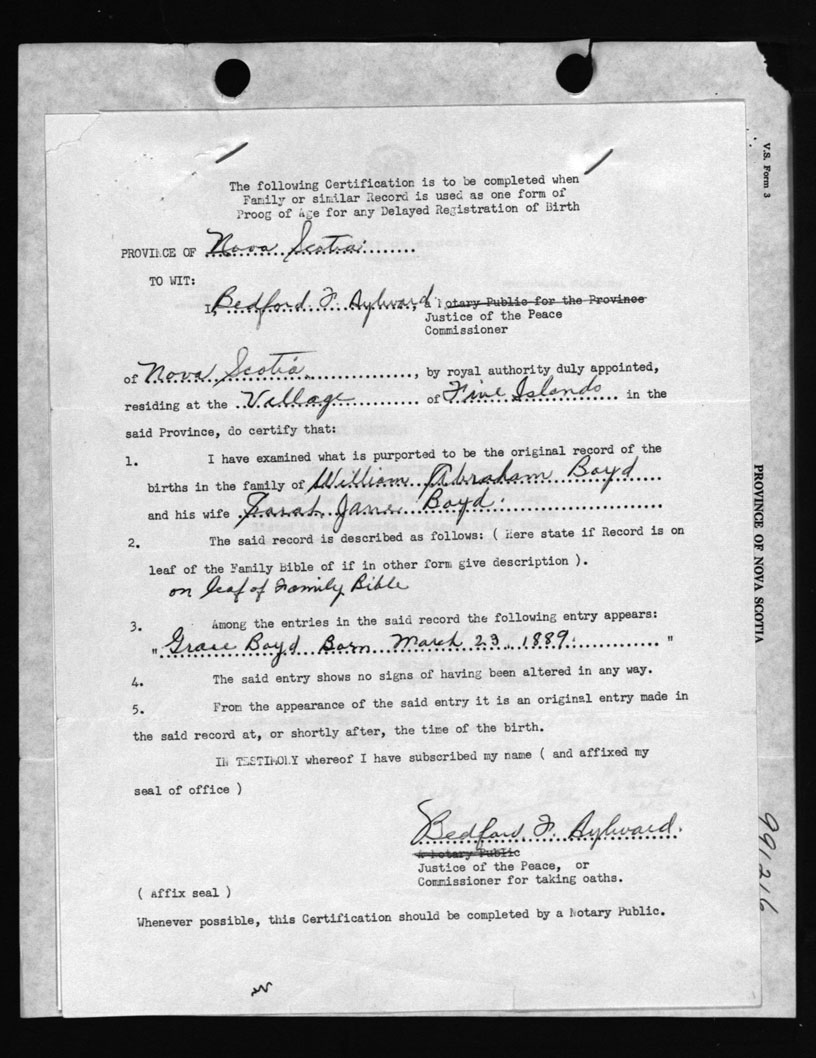 The following Certification is to be completed when
Family or similar Record is used as one form of
Proog of Age for any Delayed Registration of Birth
PROVINCE OF Nova Scotia
TO WIT:
I, Bedford F. Aylward, a Notary Public for the Province
Justice of the Peace
Commissioner
of Nova Scotia, by royal authority duly appointed,
residing at the Village of Five Islands in the
said Province, do certify that:
1. I have examined what is purported to be the original record of the
births in the family of William Abraham Boyd
and his wife Sarah Jane Boyd.
2. The said record is described as follows: ( Here state if Record is on
leaf of the Family Bible of if in other form give description ).
on leaf of Family Bible
3. Among the entries in the said record the following entry appears:
" Grace Boyd Born March 23, 1889. "
4. The said entry shows no signs of having been altered in any way.
5. From the appearance of the said entry it is an original entry made in
the said record at, or shortly after, the time of the birth.
IN TESTIMONY whereof I have subscribed my name ( and affixed my
seal of office )
Bedford F. Aylward.
A Notary Public
Justice of the Peace, or
Commissioner for taking oaths.
( Affix seal )
Whenever possible, this Certification should be completed by a Notary Public.
V.S. Form 3
PROVINCE OF NOVA SCOTIA
991216